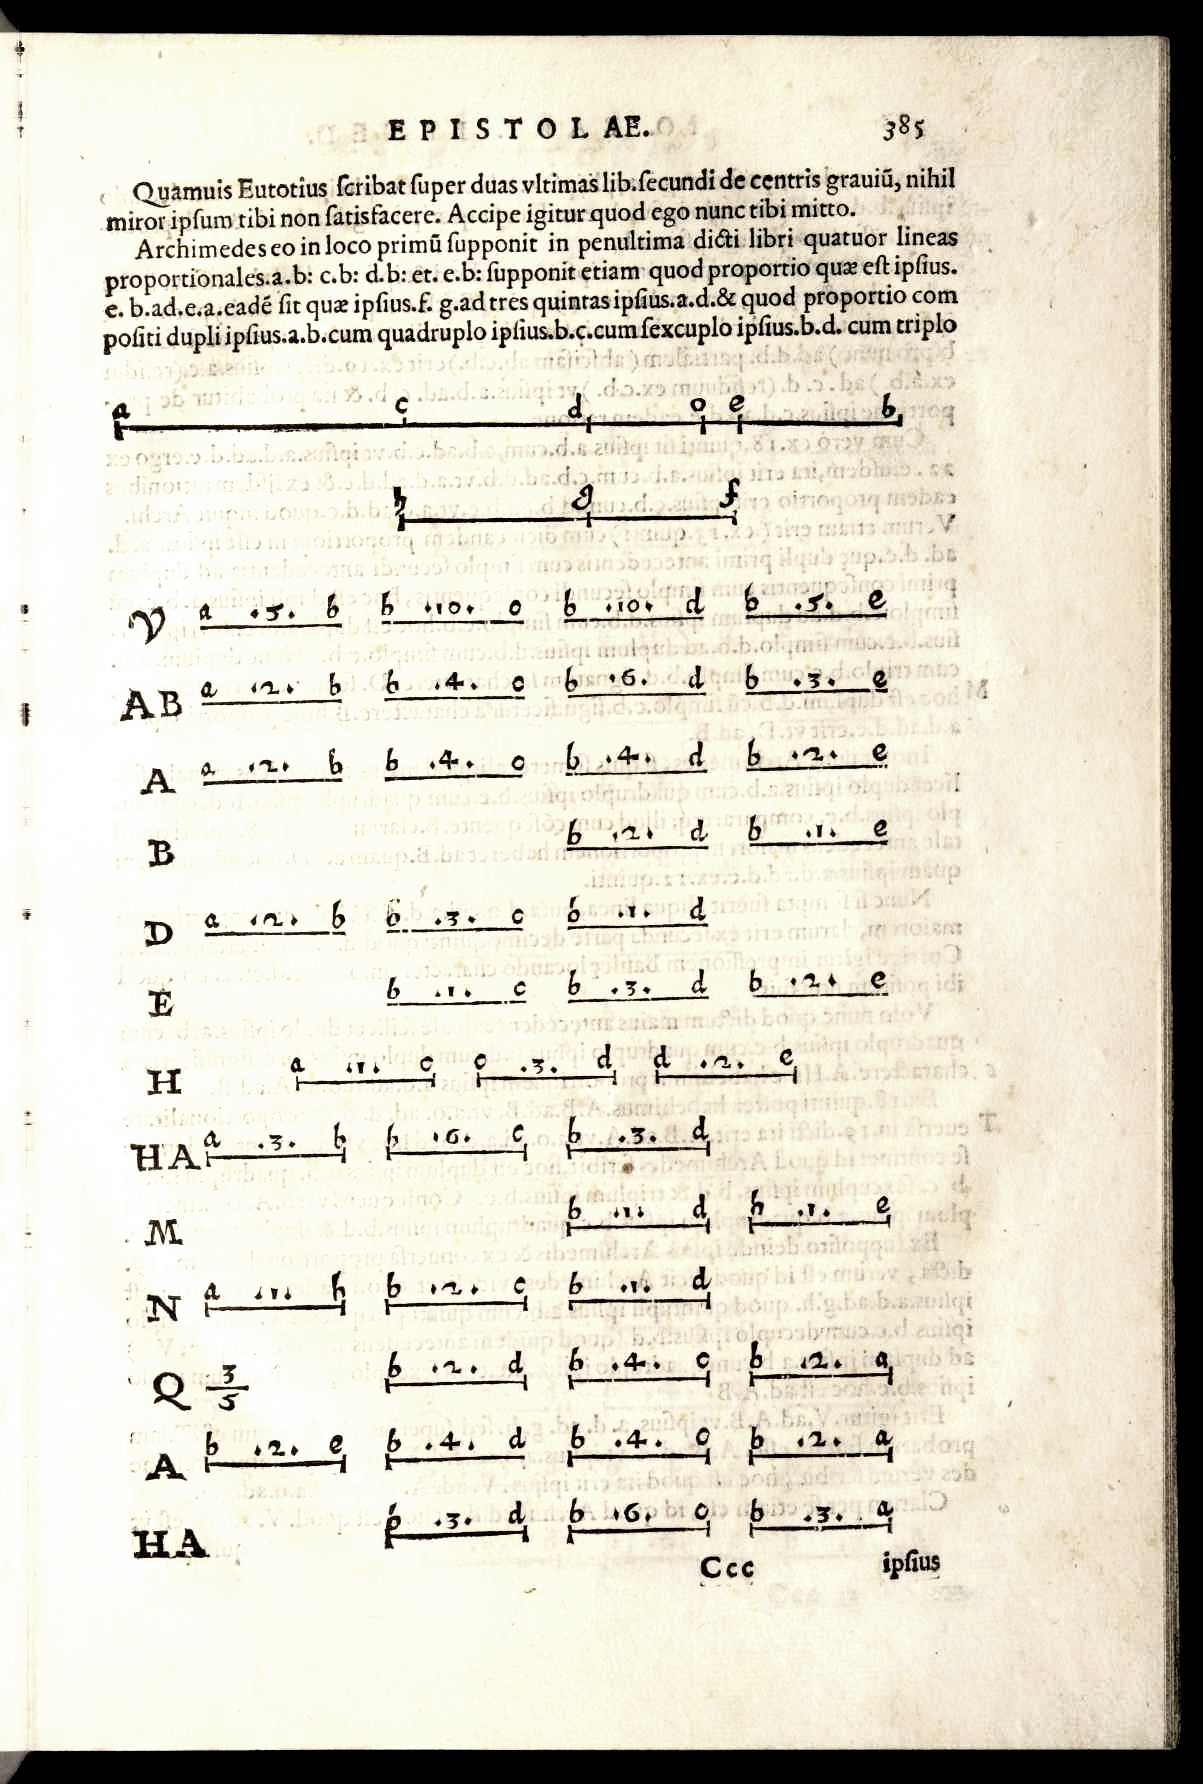 EPISTOLAE. 385
Quamuis Eutotius ſcribat ſuper duas vltimas lib. ſecundi de centris grauiũ, nihil
miror ipſum tibi non ſatisfacere. Accipe igitur quod ego nunc tibi mitto.
Archimedes eo in loco primũ ſupponit in penultima dicti libri quatuor lineas
proportionales.a.b: c.b: d.b: et. e.b: ſupponit etiam quod proportio quæ eſt ipſius.
e. b.ad.e.a.eadẽ ſit quæ ipſius.f. g.ad tres quintas ipſius.a.d.& quod proportio com
poſiti dupli ipſius.a.b.cum quadruplo ipſius.b.c.cum ſexcuplo ipſius.b.d. cum triplo
a c d o e b
h g f
V a .5. b b .10. o b .10. d b .5. e
AB a .2. b b .4. c b .6. d b .3. e
A a .2. b b .4. c b .4. d b .2. e
B b .2. d b .1. e
D a .2. b b .3. c b .1. d
E b .1. c b .3. d b .2. e
H a .1. c c .3. d d .2. e
HA a .3. b b .6. c b .3. d
M b .1. d b .1. e
N a .1. b b .2. c b .1. d
Q 3/5 b .2. d b .4. c b .2. a
A b .2. e b .4. d b .4. c b .2. a
HA b .3. d b .6. c b .3. a
Ccc ipſius